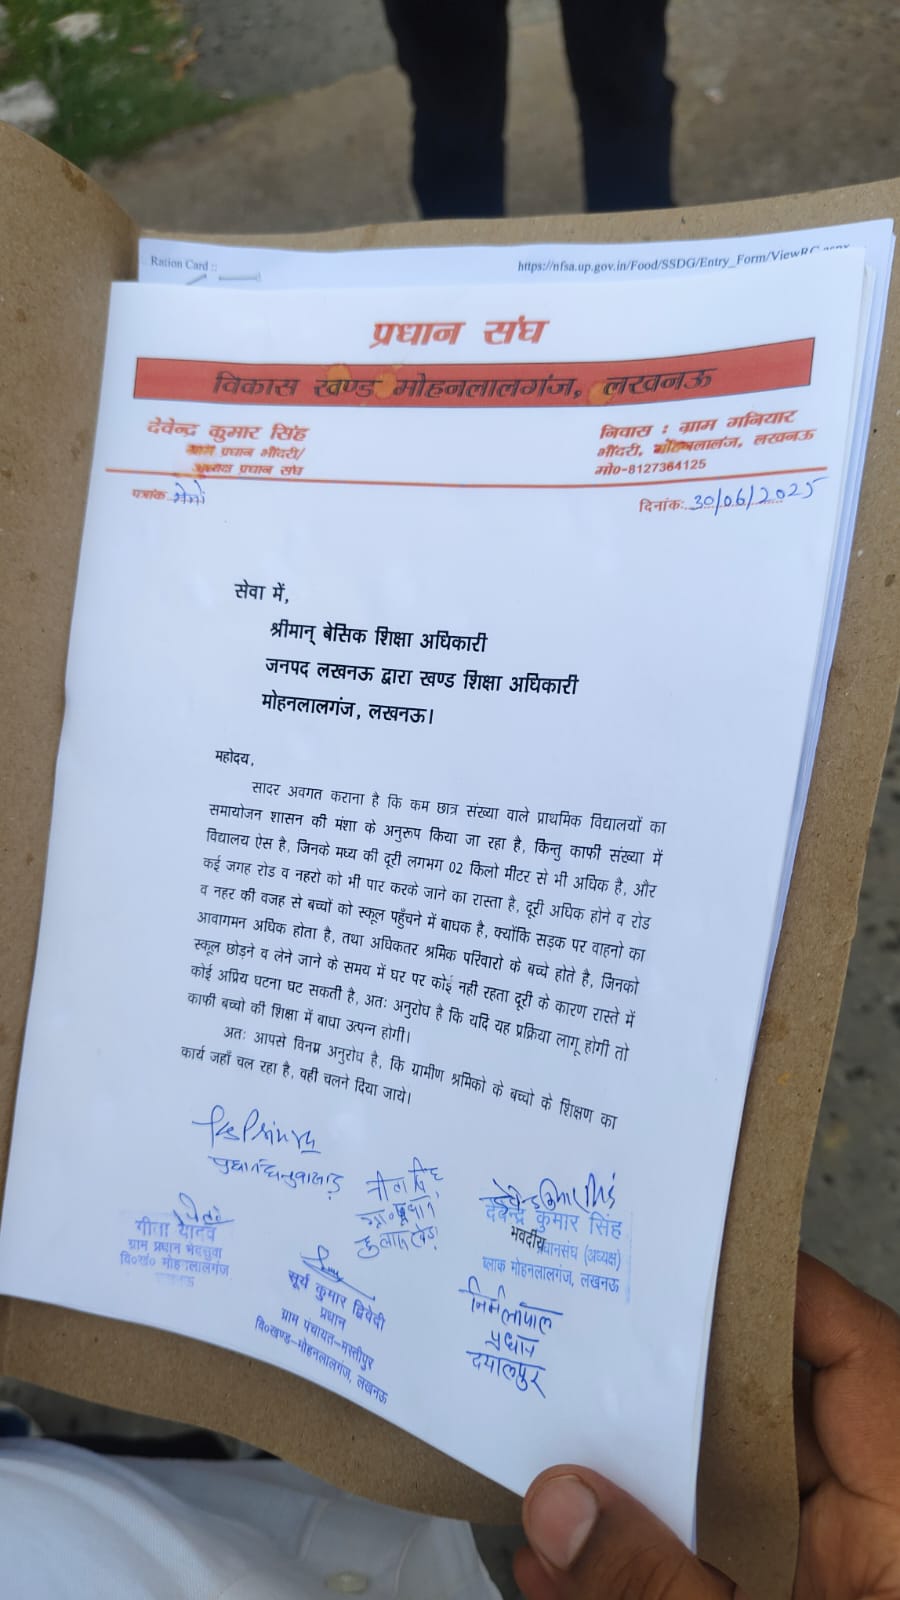 Ration Card ::
https://nfsa.up.gov.in/Food/SSDG/Entry_Form/ViewRC.aspx
प्रधान संघ
विकास खण्ड मोहनलालगंज, लखनऊ
देवेन्द्र कुमार सिंह
ग्राम प्रधान भौंदरी/
अध्यक्ष प्रधान संघ
निवास : ग्राम गनियार
भौंदरी, मोहनलालंज, लखनऊ
मो०-8127364125
पत्रांक मेमो
दिनांक: 30/06/2025
सेवा में,
श्रीमान् बेसिक शिक्षा अधिकारी
जनपद लखनऊ द्वारा खण्ड शिक्षा अधिकारी
मोहनलालगंज, लखनऊ।
महोदय,
सादर अवगत कराना है कि कम छात्र संख्या वाले प्राथमिक विद्यालयों का
समायोजन शासन की मंशा के अनुरूप किया जा रहा है, किन्तु काफी संख्या में
विद्यालय ऐस है, जिनके मध्य की दूरी लगभग 02 किलो मीटर से भी अधिक है, और
कई जगह रोड व नहरो को भी पार करके जाने का रास्ता है, दूरी अधिक होने व रोड
व नहर की वजह से बच्चों को स्कूल पहुँचने में बाधक है, क्योंकि सड़क पर वाहनो का
आवागमन अधिक होता है, तथा अधिकतर श्रमिक परिवारो के बच्चे होते है, जिनको
स्कूल छोड़ने व लेने जाने के समय में घर पर कोई नही रहता दूरी के कारण रास्ते में
कोई अप्रिय घटना घट सकती है, अतः अनुरोध है कि यदि यह प्रक्रिया लागू होगी तो
काफी बच्चो की शिक्षा में बाधा उत्पन्न होगी।
अतः आपसे विनम्र अनुरोध है, कि ग्रामीण श्रमिको के बच्चो के शिक्षण का
कार्य जहाँ चल रहा है, वही चलने दिया जाये।
ग्रा० प्रधान
देवेन्द्र कुमार सिंह
देवेन्द्र कुमार सिंह
भवदीय
प्रधानसंघ (अध्यक्ष)
ब्लाक मोहनलालगंज, लखनऊ
गीता यादव
ग्राम प्रधान भदसुवा
वि०खं० मोहनलालगंज
लखनऊ
सूर्य कुमार द्विवेदी
प्रधान
ग्राम पंचायत-मस्तीपुर
वि०खण्ड-मोहनलालगंज, लखनऊ
निर्मला पाल
प्रधान
दयालपुर